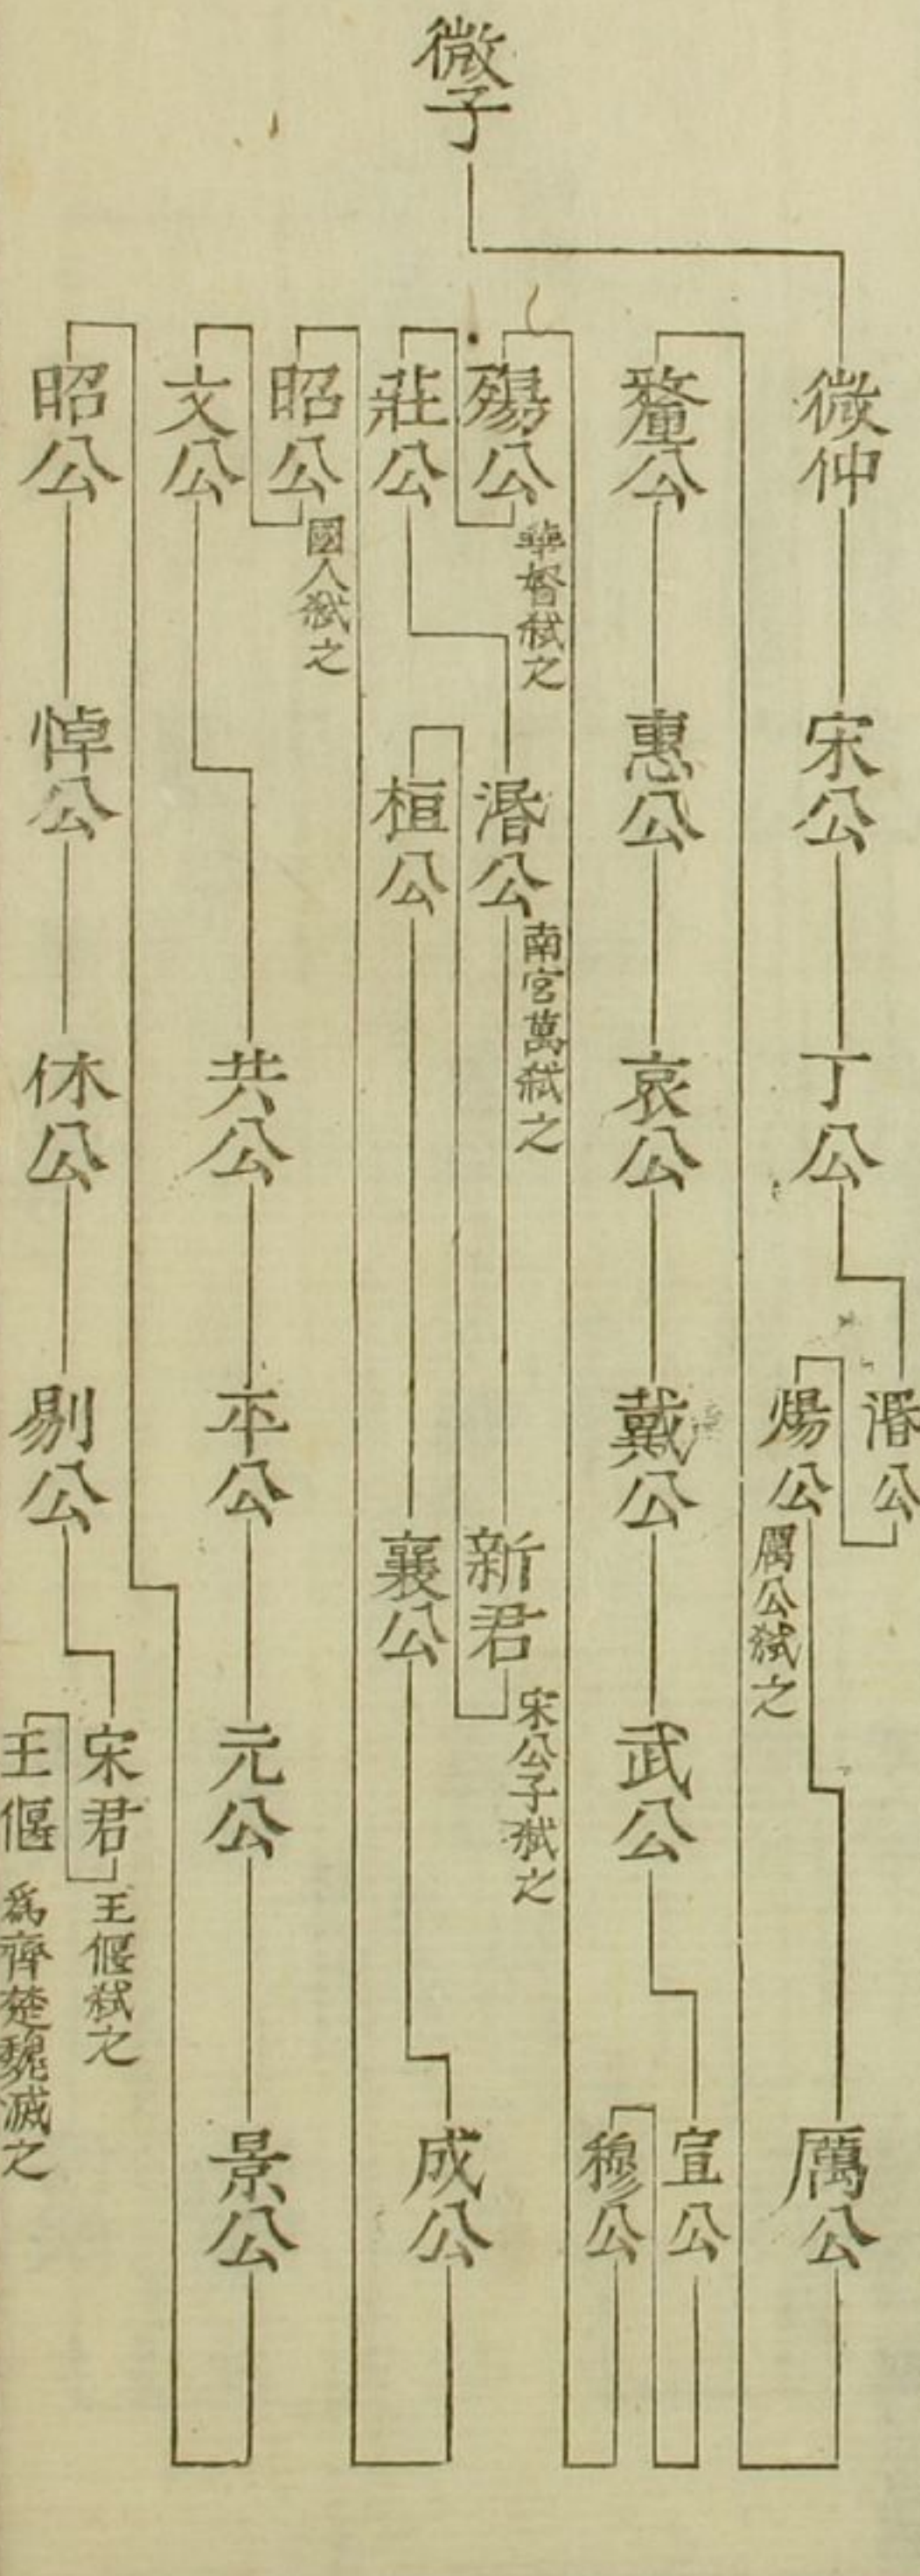 微子
微仲
宋公
丁公
湣公
煬公
厲公弒之
厲公
釐公
惠公
哀公
戴公
武公
宣公
穆公
殤公
華督弒之
莊公
湣公
南宮萬弒之
桓公
新君
宋公子弒之
襄公
成公
昭公
國人弒之
文公
共公
平公
元公
景公
昭公
悼公
休公
剔公
宋君
王偃弒之
王偃
為齊楚魏滅之